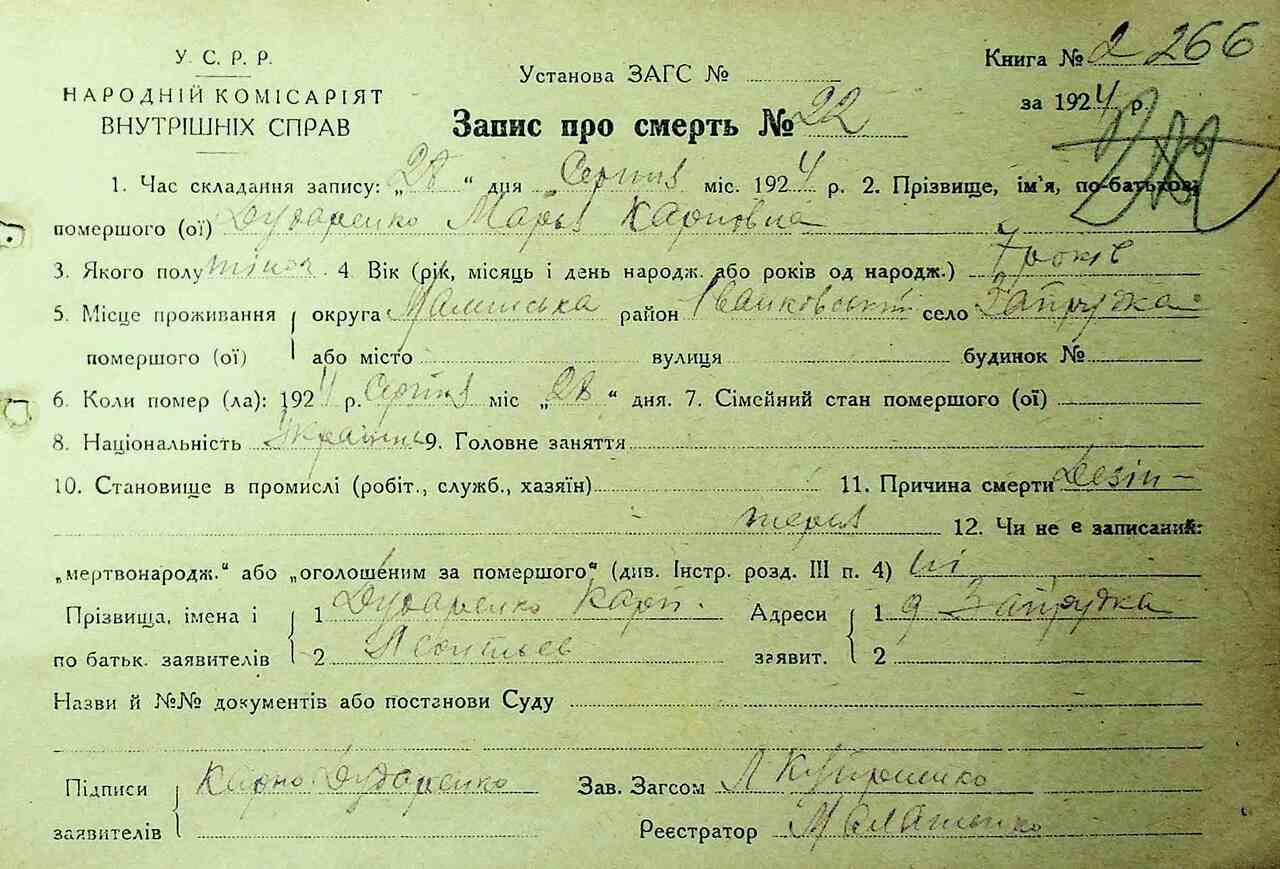 У. С. Р. Р.
НАРОДНІЙ КОМІСАРІЯТ
ВНУТРІШНІХ СПРАВ
Установа ЗАГС №
Запис про смерть № 22
Книга № 2 266
за 1924 р.
1. Час складання запису: „28“ дня „Серпня міс. 1924 р. 2. Прізвище, ім'я, по-батькові
помершого (ої) Дударенко Марья Карповна
3. Якого полу жіноч. 4. Вік (рік, місяць і день народж. або років од народж.) 7 років
5. Місце проживання округа Малинська район Іванковський село Запрудка
помершого (ої) або місто вулиця будинок №
6. Коли помер (ла): 1924 р. Серпня міс „28“ дня. 7. Сімейний стан помершого (ої)
8. Національність Украінка 9. Головне заняття
10. Становище в промислі (робіт., служб., хазяїн) 11. Причина смерти Дезін-
терія 12. Чи не е записаний:
„мертвонародж.“ або „оголошеним за помершого“ (див. Інстр. розд. III п. 4) Ні
Прізвища, імена і 1 Дударенко Карп. Адреси 1 д Запрудка
по батьк. заявителів 2 Леонтьев заявит. 2
Назви й №№ документів або постанови Суду
Підписи Карпо Дударенко Зав. Загсом
заявителів Реєстратор